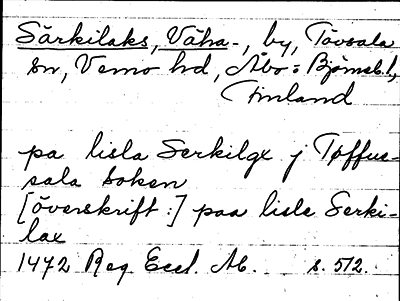 Särkilaks, Väha-, by, Tövsala
sn, Vemo hd, Åbo o Björneb. l,
Finland
pa lisla Serkilgx j Tøffue-
sala soken
[överskrift:] paa lisle Serki-
lax
1472 Reg. Eccl. Ab. s. 512.